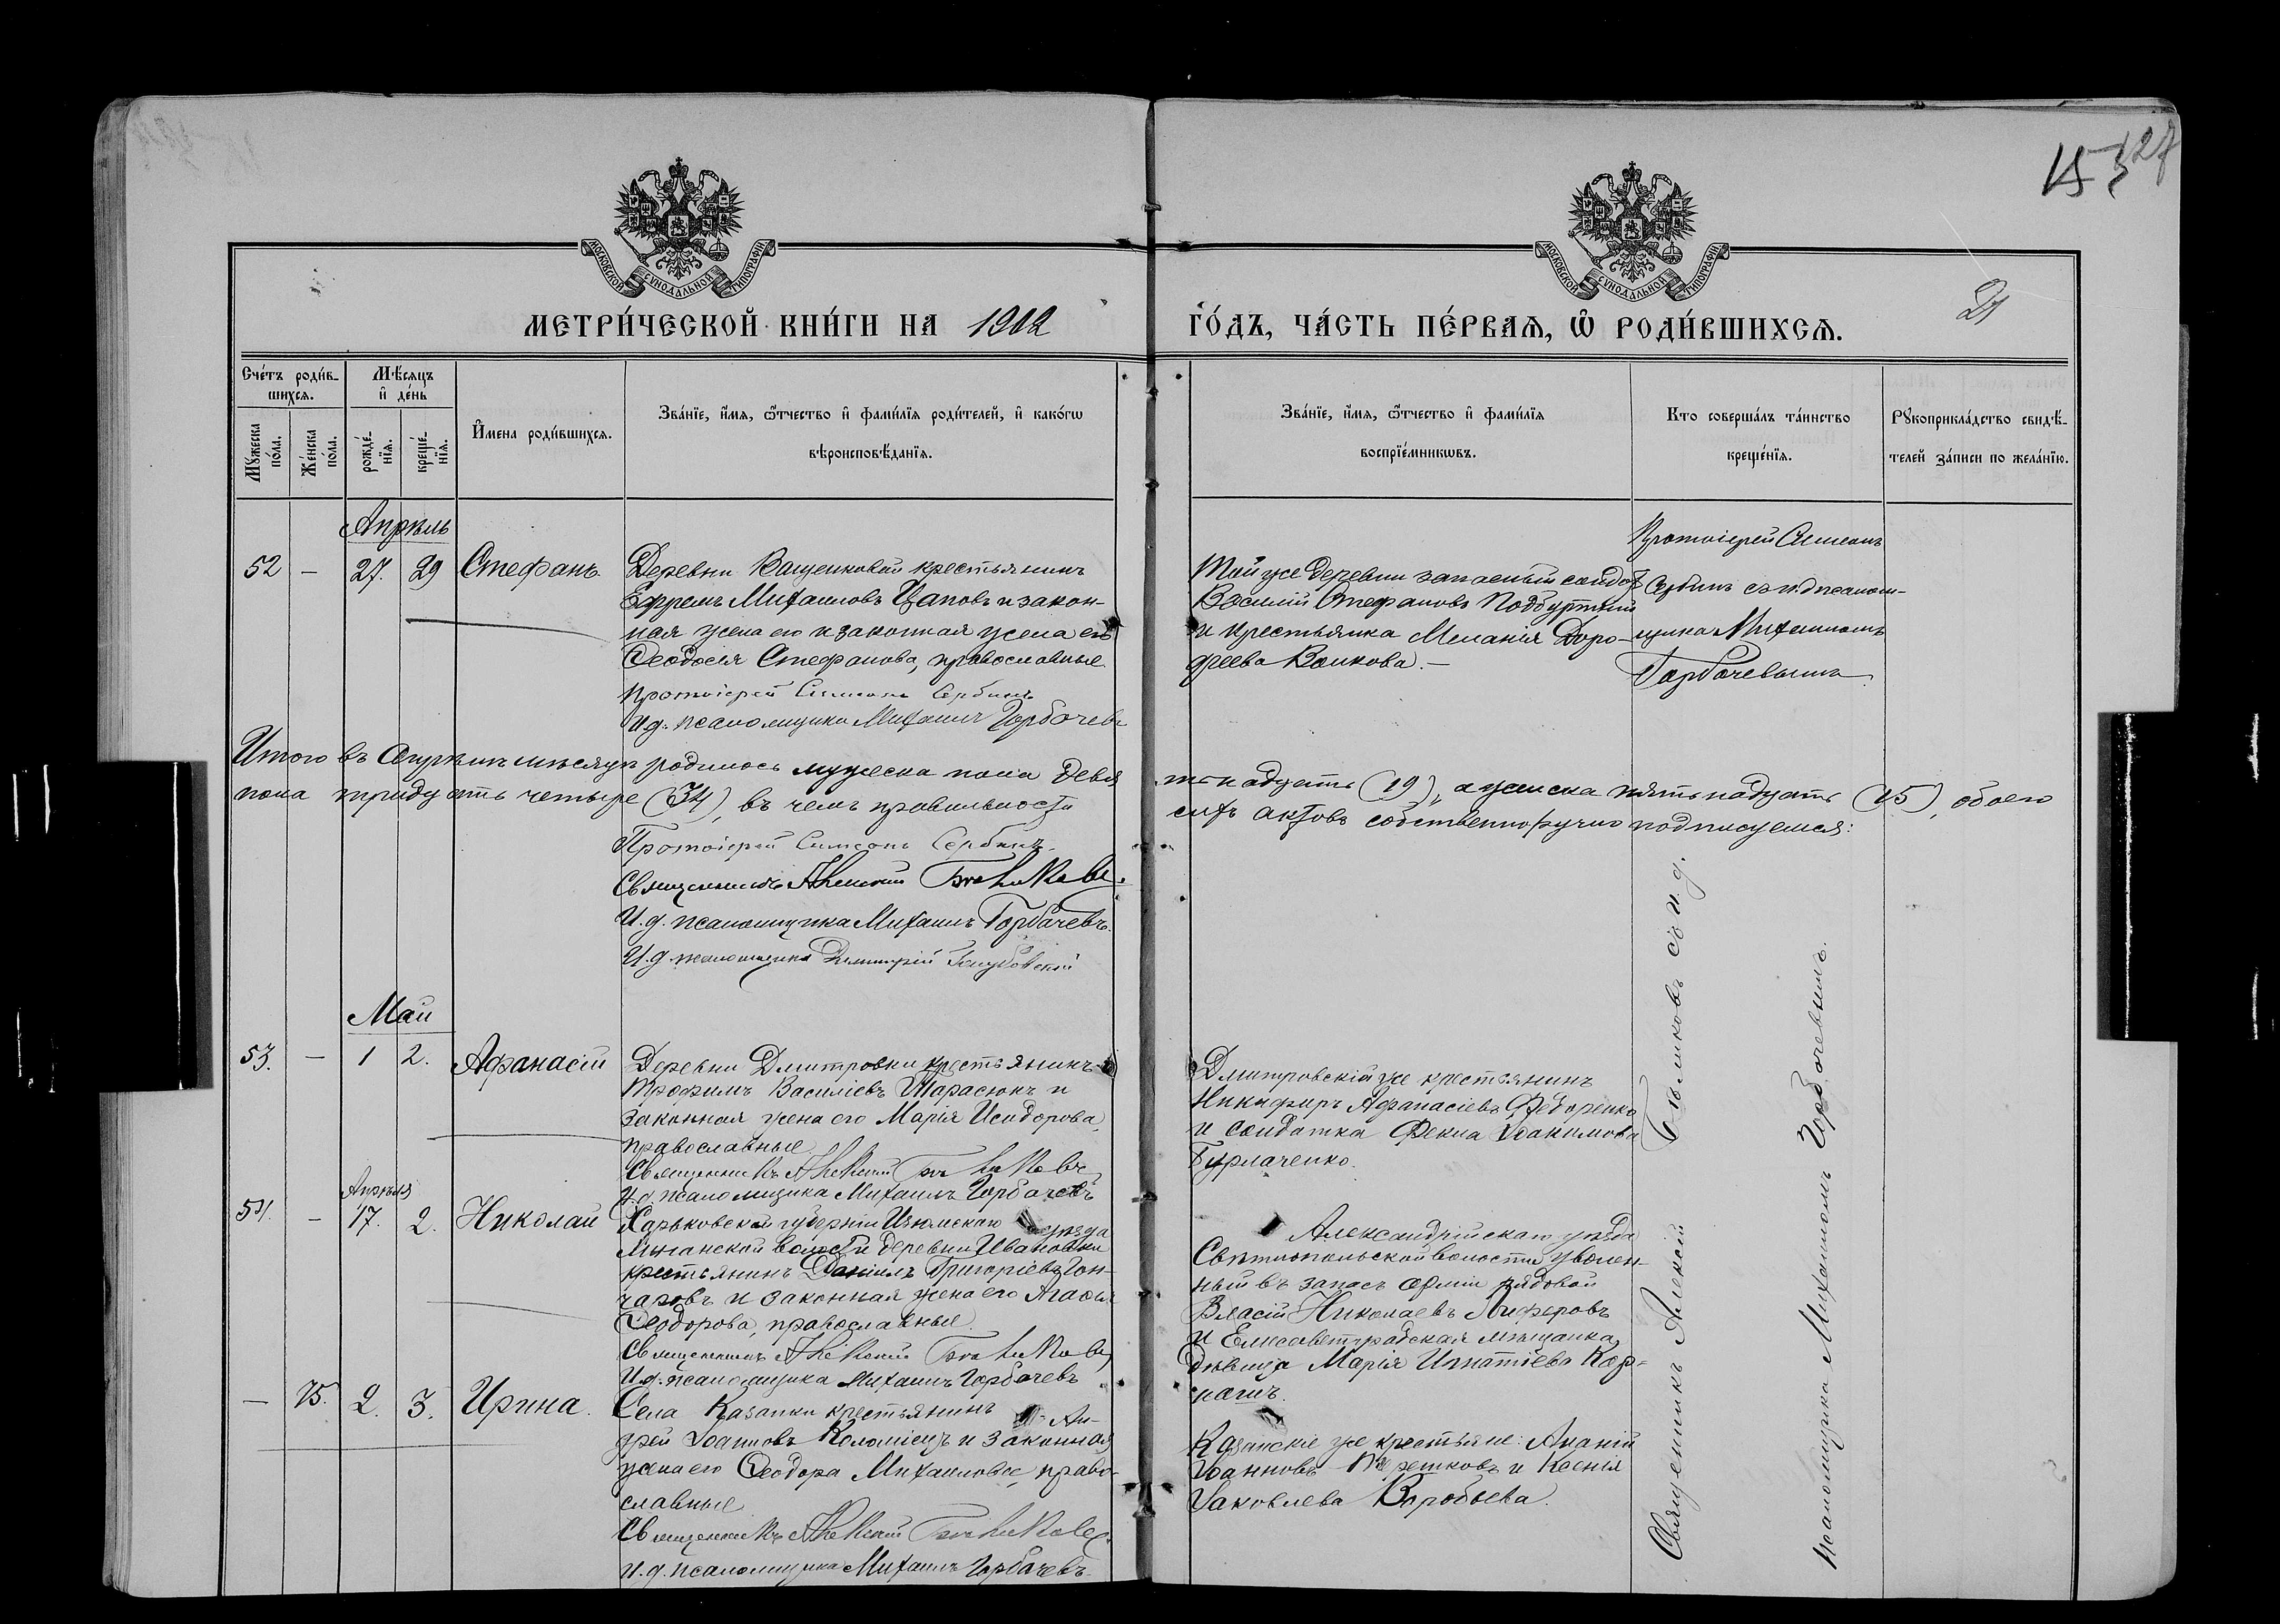 153 127
21
МОСКОВСКОЙ СУНОДАЛЬНОЙ ТИПОГРАФІИ
МОСКОВСКОЙ СУНОДАЛЬНОЙ ТИПОГРАФІИ
МЕТРИ́ЧЕСКОЙ КНИ́ГИ НА 1902
ГО́ДЪ, ЧА́СТЬ ПЕ́РВАѦ, Ѽ РОДИ́ВШИХСѦ.
Сче́тъ роди́в-
шихсѧ.
Мꙋ́жеска по́ла.
Же́нска по́ла.
Мѣ́сѧцъ
и҆ де́нь
рожде́-
нїѧ.
креще́-
нїѧ.
И҆мена роди́вшихсѧ.
Зва́нїе, и҆́мѧ, ѻ҆́тчество и҆ фами́лїѧ роди́телей, и҆ како́гѡ
вѣроисповѣ́данїѧ.
Зва́нїе, и҆́мѧ, ѻ҆́тчество и҆ фами́лїѧ
воспрїе́мникѡвъ.
Кто соверша́лъ та́инство
креще́нїѧ.
Рꙋкоприкла́дство свидѣ́-
телей за́писи по жела́нїю.
Апрѣль
52 — 27. 29 Стефанъ.
Деревни крестьянинъ
Ефремъ Михаиловъ Цаповъ и закон-
ная жена его и законная жена его
Ѳеодосія Стефанова, православные.
Протоіерей Симеонъ Сербинъ
И.д. псаломщика Михаилъ Горбачевъ
Той же деревни запасный солдатъ
Василій Стефановъ
и крестьянка Меланія Доро-
феева Волкова.—
Протоіерей Симеонъ
Сербинъ съ и.д. псалом-
щика Михаиломъ
Горбачевымъ.
Итого въ Апрѣлѣ мѣсяцѣ родилось мужеска пола девят-
надцать (19), а женска пятьнадцать (15), обоего
пола тридцать четыре (34), въ чемъ правильности
сихъ актовъ собственноручно подписуемся:
Протоіерей Симеонъ Сербинъ.
Священникъ Алексій
И.д. псаломщика Михаилъ Горбачевъ.
И.д. псаломщика Димитрій
Май
53. — 1 2. Афанасій
Деревни Дмитровки крестьянинъ
Трофимъ Василіевъ Тарасюкъ и
законная жена его Марія Исидорова,
православные
Священникъ Алексій
И.д. псаломщика Михаилъ Горбачевъ
Дмитровскій же крестьянинъ
Никифоръ Афанасіевъ Федоренко
и солдатка Фекла Іоакимова
Бурлаченко.
Апрѣля
54. — 17. 2. Николай
Харьковской губерніи Изюмскаго уѣзда
волости деревни Ивановки
крестьянинъ Даніилъ Григоріевъ Гон-
чаровъ и законная жена его Агафія
Ѳеодорова, православные.
Священникъ Алексій
И.д. псаломщика Михаилъ Горбачевъ
Александрійскаго уѣзда
Свѣтлопольской волости уволен-
ный въ запасъ арміи рядовой
Власій Николаевъ
и Елисаветградская мѣщанка
дѣвица Марія Игнатіева Кор-
— 15. 2. 3. Ирина.
Села Казанки крестьянинъ Ан-
дрей Іоанновъ Коломіецъ и законная
жена его Ѳеодора Михаиловна, право-
славные
Священникъ Алексій
И.д. псаломщика Михаилъ Горбачевъ
Казанскіе же крестьяне: Ананій
Іоанновъ и Ксенія
Іаковлева Воробьева.
Священникъ Алексій съ и.д.
псаломщика Михаиломъ Горбачевымъ.